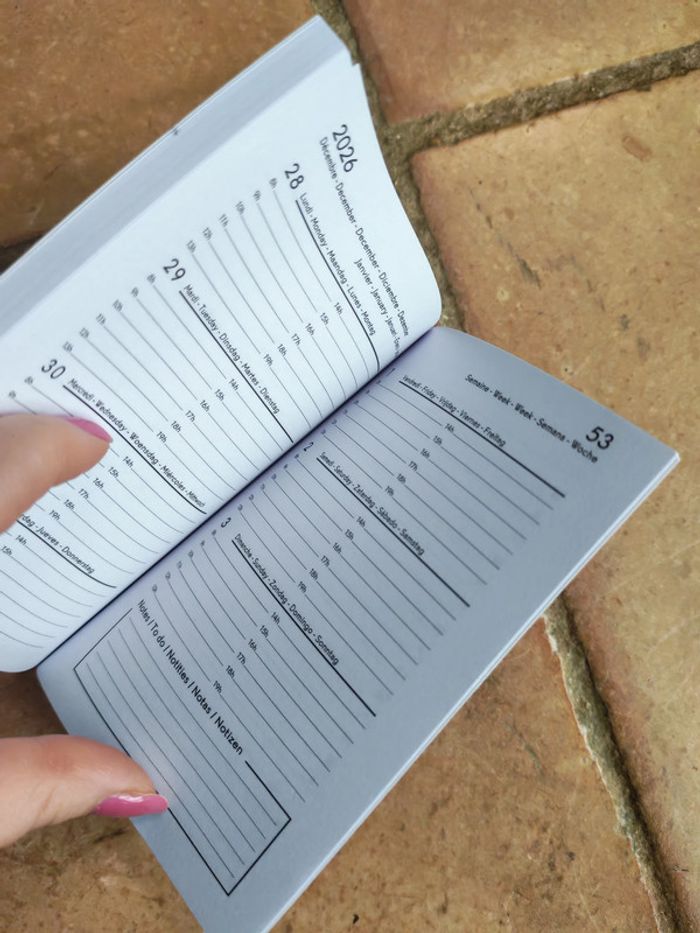 2026
Décembre - December - December - Diciembre - Dezember
Janvier - January - Januari -
28 Lundi - Monday - Maandag - Lunes - Montag
8h 14h
9h 15h
10h 16h
11h 17h
12h 18h
13h 19h
29 Mardi - Tuesday - Dinsdag - Martes - Dienstag
8h 14h
9h 15h
10h 16h
11h 17h
12h 18h
13h 19h
30 Mercredi - Wednesday - Woensdag - Miércoles - Mittwoch
8h 14h
9h 15h
16h
17h
18h
19h
Jueves - Donnerstag
14h
15h
Semaine - Week - Week - Semana - Woche 53
Vendredi - Friday - Vrijdag - Viernes - Freitag
14h
15h
16h
17h
18h
19h
2 Samedi - Saturday - Zaterdag - Sábado - Samstag
14h
15h
16h
17h
18h
19h
3 Dimanche - Sunday - Zondag - Domingo - Sonntag
14h
15h
16h
17h
18h
19h
Notes / To do / Notities / Notas / Notizen